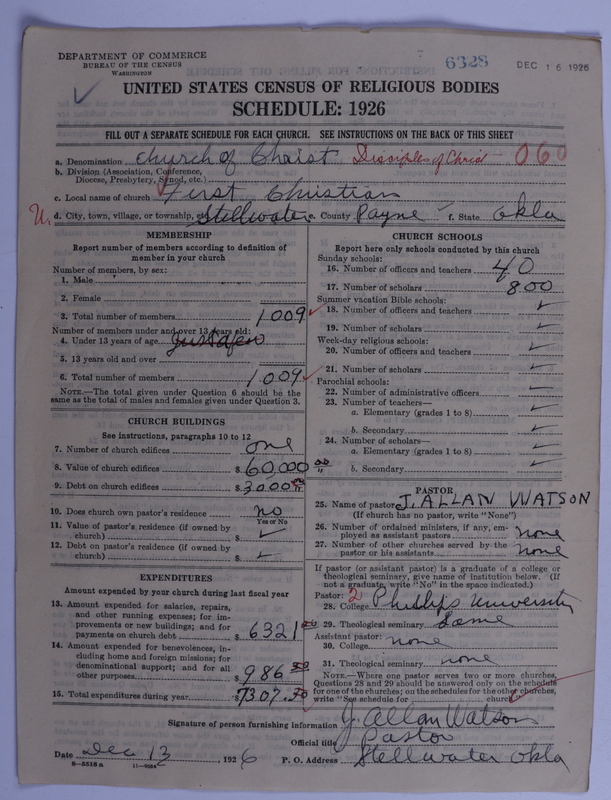 DEPARTMENT OF COMMERCE
BUREAU OF THE CENSUS
WASHINGTON
6328
DEC 16 1926
UNITED STATES CENSUS OF RELIGIOUS BODIES
SCHEDULE: 1926
FILL OUT A SEPARATE SCHEDULE FOR EACH CHURCH. SEE INSTRUCTIONS ON THE BACK OF THIS SHEET
a. Denomination Church of Christ Disciples of Christ 060
b. Division (Association, Conference,
Diocese, Presbytery, Synod, etc.)
c. Local name of church First Christian
U. d. City, town, village, or township, Stillwater e. County Payne f. State Okla
MEMBERSHIP
Report number of members according to definition of
member in your church
Number of members, by sex:
1. Male
2. Female
3. Total number of members 1009
Number of members under and over 13 years old:
4. Under 13 years of age
5. 13 years old and over
6. Total number of members 1009
NOTE.—The total given under Question 6 should be
same as the total of males and females given under Question 3.
CHURCH BUILDINGS
See instructions, paragraphs 10 to 12
7. Number of church edifices one
8. Value of church edifices $ 60,000 00
9. Debt on church edifices $ 3000 00
10. Does church own pastor's residence no
Yes or No
11. Value of pastor's residence (if owned by
church) $ ✓
12. Debt on pastor's residence (if owned by
church) $ ✓
EXPENDITURES
Amount expended by your church during last fiscal year
13. Amount expended for salaries, repairs,
and other running expenses; for im-
provements or new buildings; and for
payments on church debt $ 6321
14. Amount expended for benevolences, in-
cluding home and foreign missions; for
denominational support; and for all
other purposes $ 986
15. Total expenditures during year $ 7307
CHURCH SCHOOLS
Report here only schools conducted by this church
Sunday schools:
16. Number of officers and teachers 40
17. Number of scholars 800
Summer vacation Bible schools:
18. Number of officers and teachers ✓
19. Number of scholars ✓
Week-day religious schools:
20. Number of officers and teachers ✓
21. Number of scholars ✓
Parochial schools:
22. Number of administrative officers ✓
23. Number of teachers—
a. Elementary (grades 1 to 8) ✓
b. Secondary ✓
24. Number of scholars—
a. Elementary (grades 1 to 8) ✓
b. Secondary ✓
PASTOR
25. Name of pastor J. ALLAN WATSON
(If church has no pastor, write "None")
26. Number of ordained ministers, if any, em-
ployed as assistant pastors none
27. Number of other churches served by the
pastor or his assistants none
If pastor (or assistant pastor) is a graduate of a college or
theological seminary, give name of institution below. (If
not a graduate, write "No" in the space indicated.)
Pastor: 2
28. College Phillips University
29. Theological seminary Same
Assistant pastor:
30. College none
31. Theological seminary none
NOTE.—Where one pastor serves two or more churches,
Questions 28 and 29 should be answered only on the schedule
for one of the churches; on the schedules for the other churches,
write "See schedule for church"
Signature of person furnishing information J. Allan Watson
Official title Pastor
Date Dec 13, 1926 P. O. Address Stillwater Okla
8—5518 a